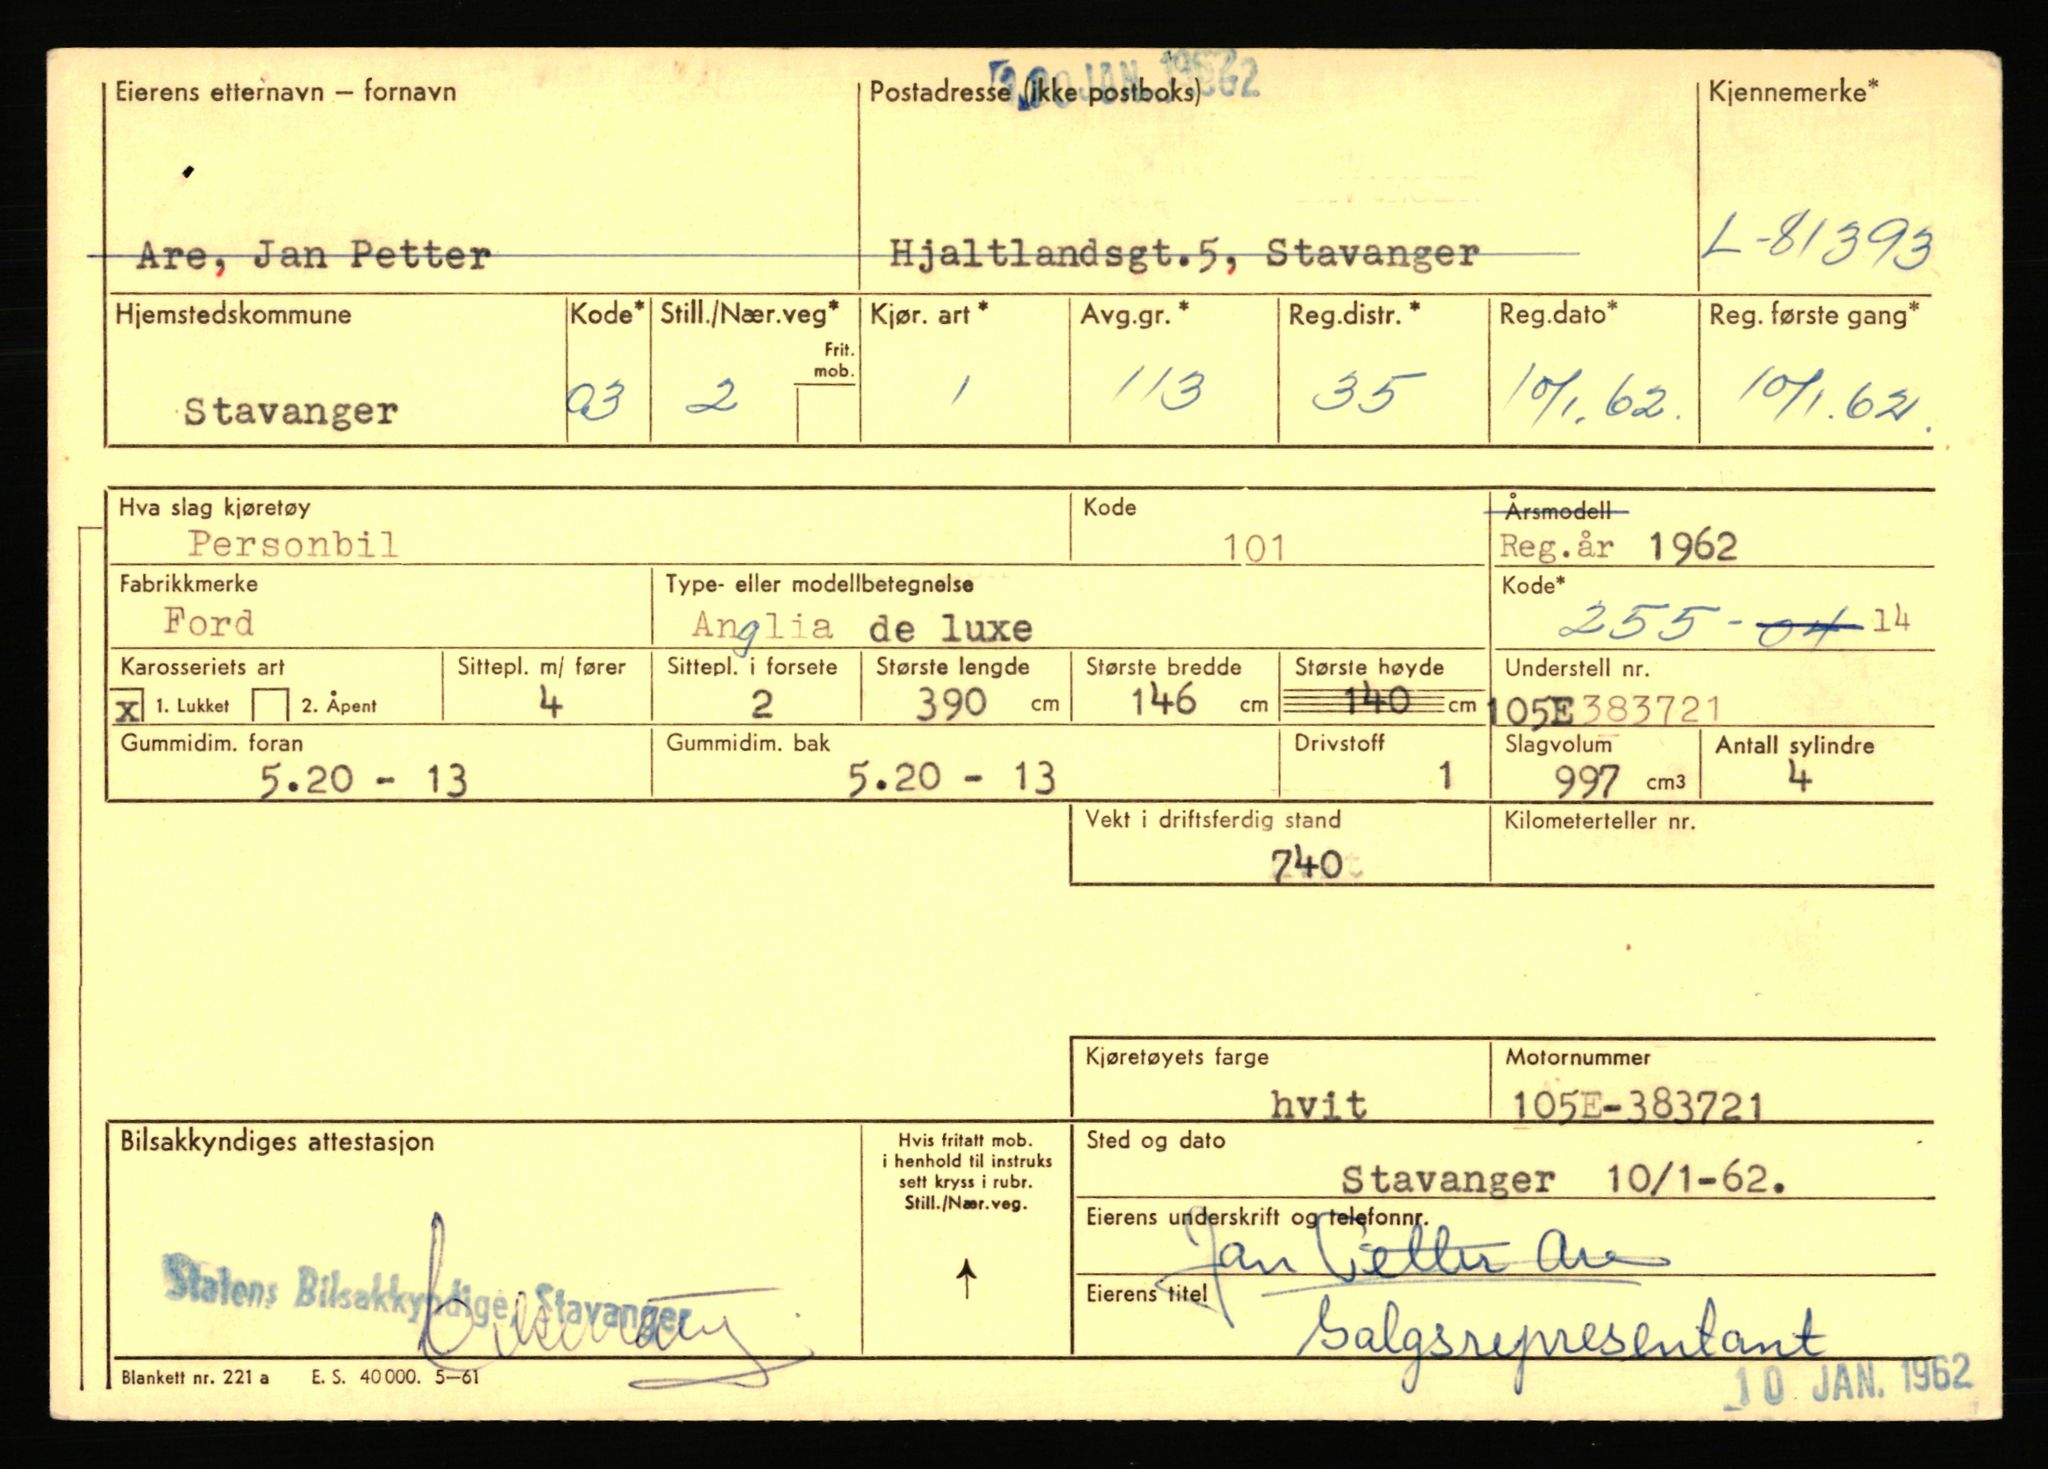 10 JAN. 1962
Eierens etternavn – fornavn Postadresse (ikke postboks) Kjennemerke*
Are, Jan Petter Hjaltlandsgt.5, Stavanger L-81393
Hjemstedskommune Kode* Still./Nær.veg* Kjør. art* Avg.gr.* Reg.distr.* Reg.dato* Reg. første gang*
Frit.
mob.
Stavanger 03 2 1 113 35 10/1.62. 10/1.62.
Hva slag kjøretøy Kode Årsmodell
Personbil 101 Reg.år 1962
Fabrikkmerke Type- eller modellbetegnelse Kode*
Ford Anglia de luxe 255-04 14
Karosseriets art Sittepl. m/ fører Sittepl. i forsete Største lengde Største bredde Største høyde Understell nr.
x 1. Lukket 2. Åpent 4 2 390 cm 146 cm 140 cm 105E383721
Gummidim. foran Gummidim. bak Drivstoff Slagvolum Antall sylindre
5.20 - 13 5.20 - 13 1 997 cm3 4
Vekt i driftsferdig stand Kilometerteller nr.
740
Kjøretøyets farge Motornummer
hvit 105E-383721
Bilsakkyndiges attestasjon Hvis fritatt mob. Sted og dato
i henhold til instruks
sett kryss i rubr.
Still./Nær.veg.
Stavanger 10/1-62.
Eierens underskrift og telefonnr.
Jan Petter Are
Statens Bilsakkyndige, Stavanger
Eierens titel
Salgsrepresentant
Blankett nr. 221 a E. S. 40 000. 5–61
10 JAN. 1962